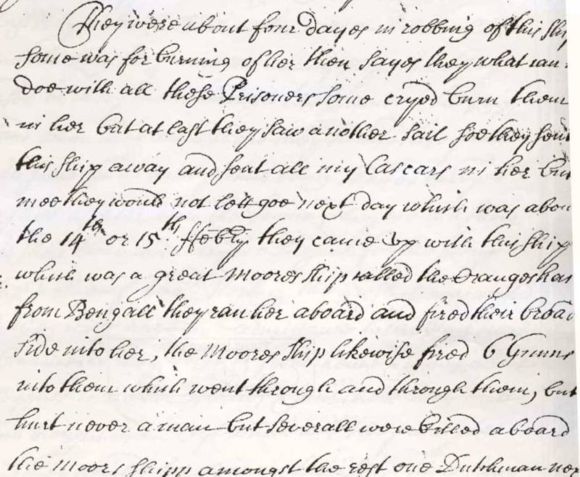 They were about four dayes in robbing of this ship
some was for burning of her then sayes they what can
doe with all these Prisoners some cryed burn them
in her but at last they saw another sail soe they sent
this ship away and sent all my Lascars in her but
mee they would not lett goe next day which was abou
the 14th or 15th ffebry they came vp with this ship
which was a great Moores ship called the
from Bengall they ran her aboard and fired their broad
side into her, the Moores ship likewise fired 6 Gunns
into them which went through and through them, but
hurt never a man but severall were killed aboard
the Moors shipp amongst the rest one Dutchman